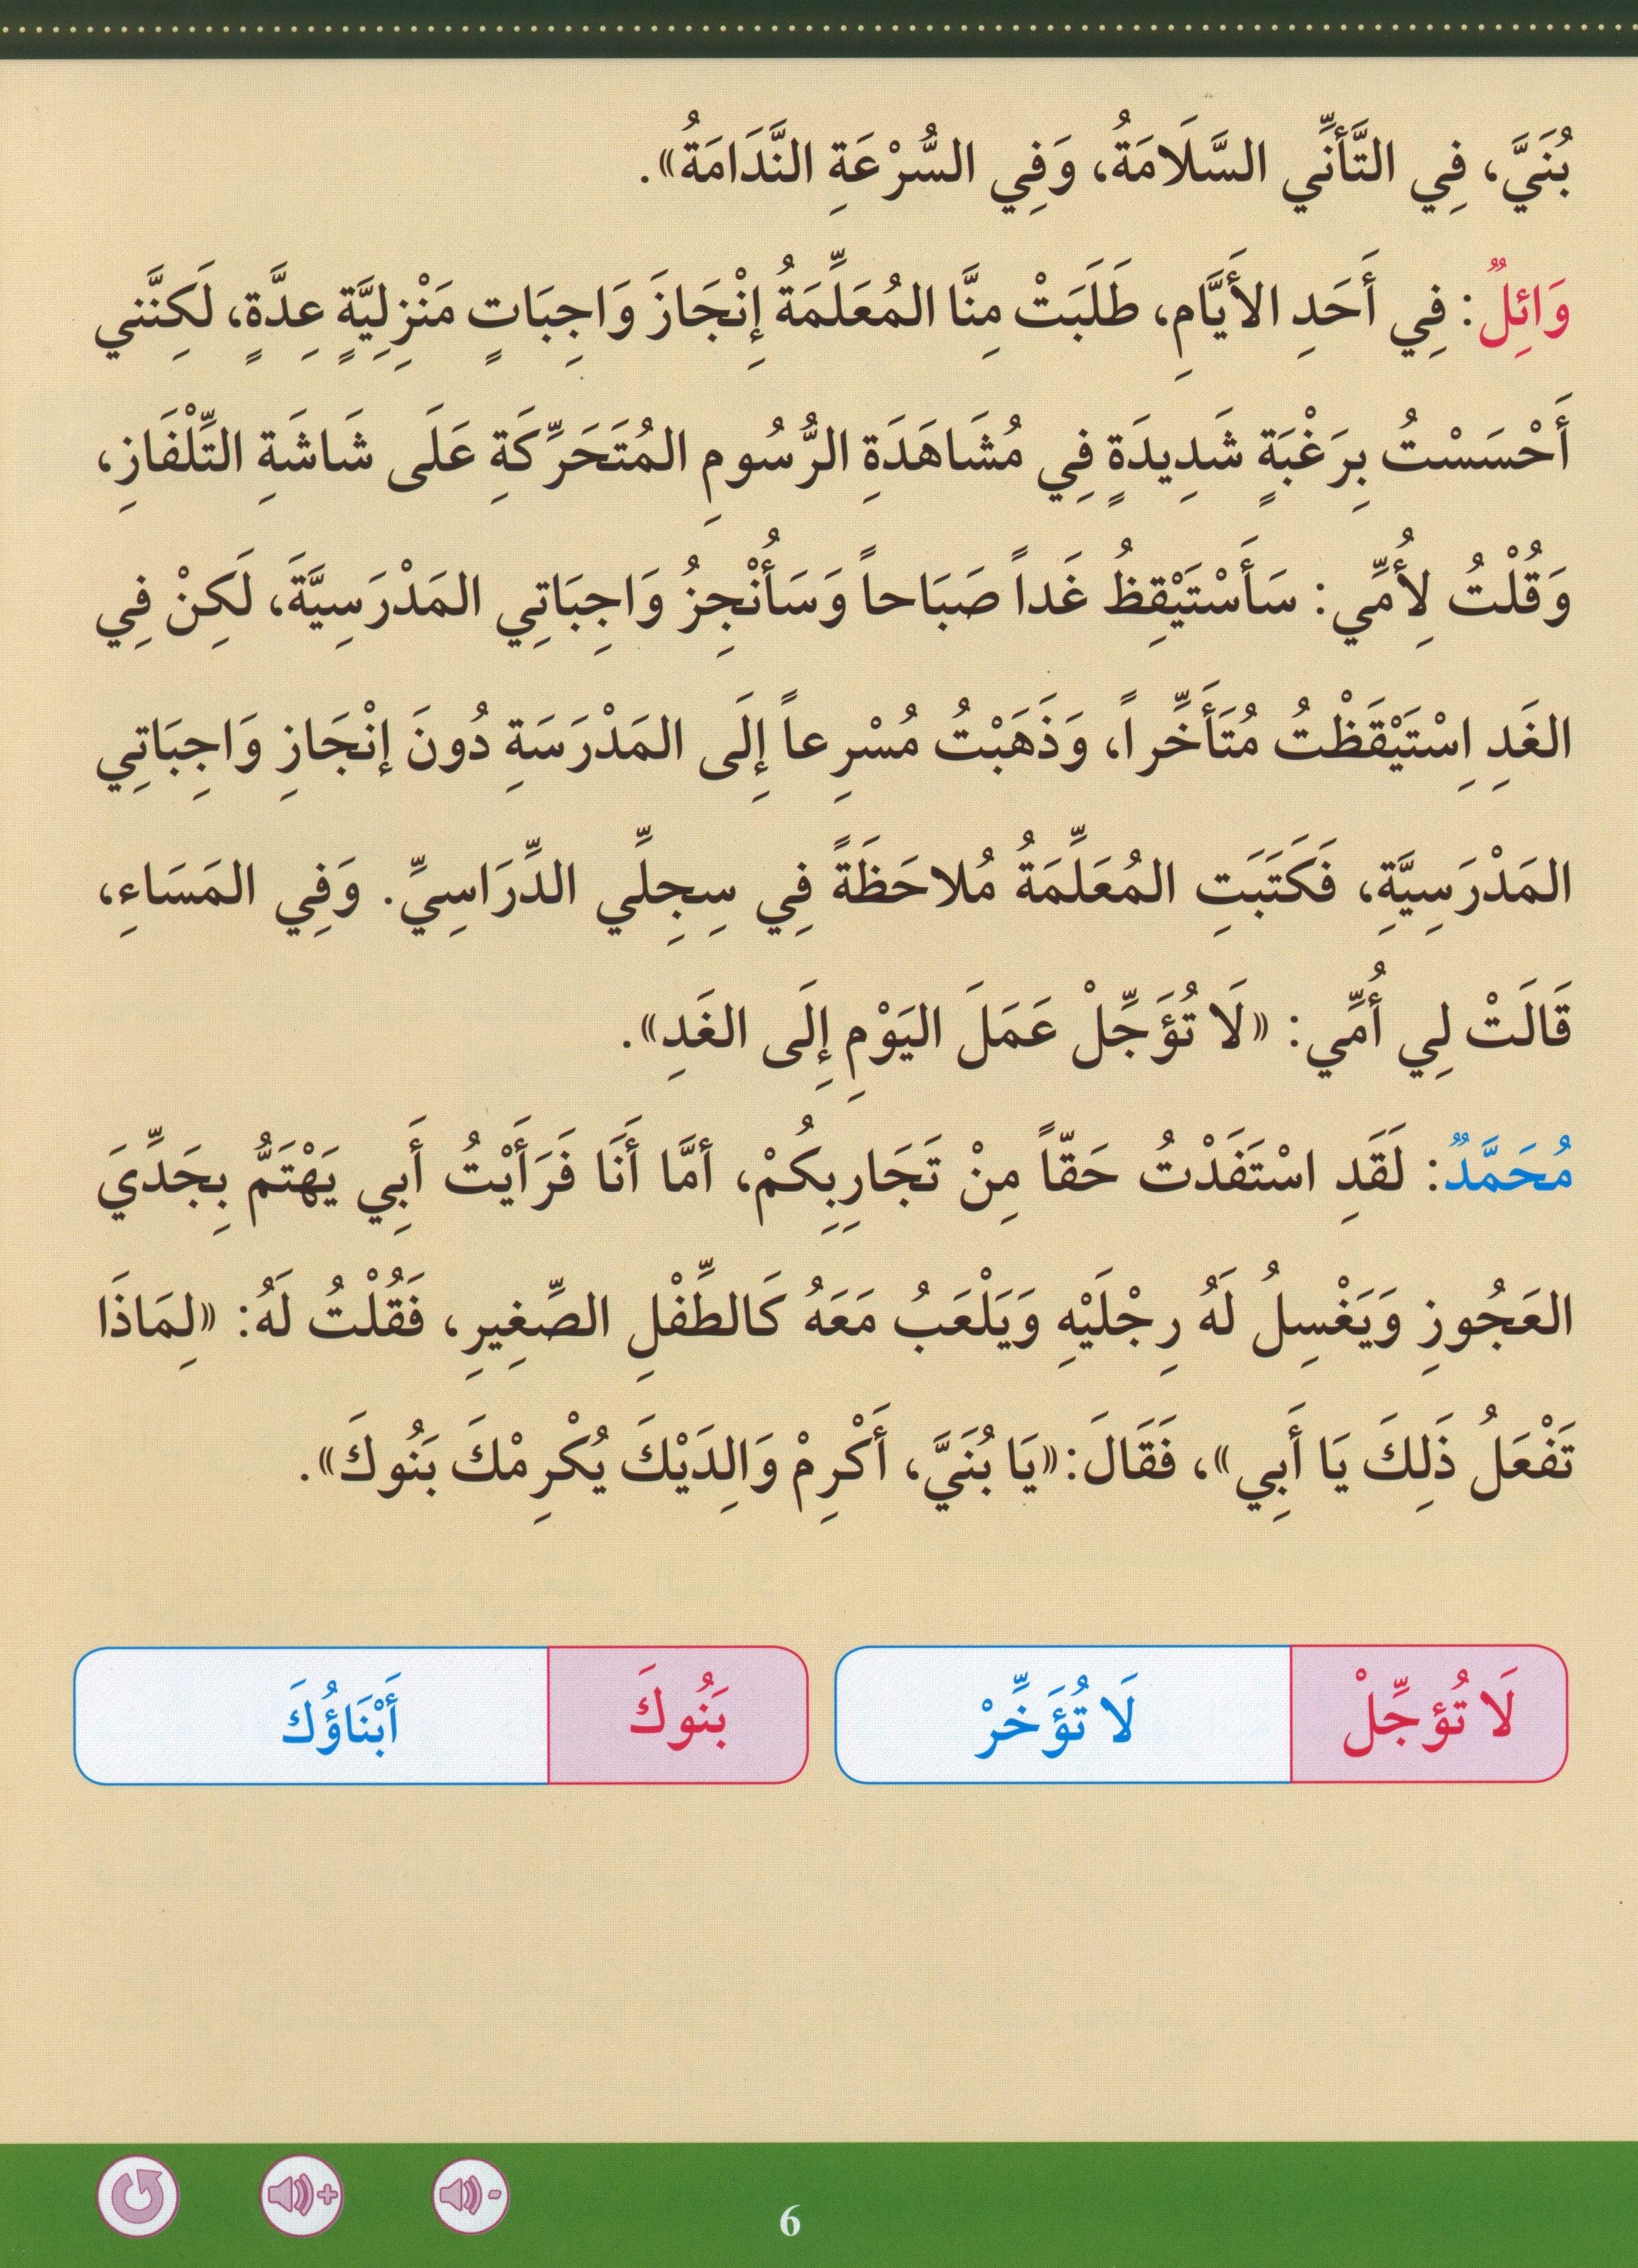 بُنَيَّ، فِي التَّأنِّي السَّلَامَةُ، وَفِي السُّرْعَةِ النَّدَامَةُ».
وَائِلٌ: فِي أَحَدِ الأَيَّامِ، طَلَبَتْ مِنَّا المُعَلِّمَةُ إِنْجَازَ وَاجِبَاتٍ مَنْزِلِيَّةٍ عِدَّةٍ، لَكِنَّني
أَحْسَسْتُ بِرَغْبَةٍ شَدِيدَةٍ فِي مُشَاهَدَةِ الرُّسُومِ المُتَحَرِّكَةِ عَلَى شَاشَةِ التِّلْفَازِ،
وَقُلْتُ لِأُمِّي: سَأَسْتَيْقِظُ غَداً صَبَاحاً وَسَأُنْجِزُ وَاجِبَاتِي المَدْرَسِيَّةَ، لَكِنْ فِي
الغَدِ اِسْتَيْقَظْتُ مُتَأَخِّراً، وَذَهَبْتُ مُسْرِعاً إِلَى المَدْرَسَةِ دُونَ إنْجَازِ وَاجِبَاتِي
المَدْرَسِيَّةِ، فَكَتَبَتِ المُعَلِّمَةُ مُلاحَظَةً فِي سِجِلِّي الدِّرَاسِيِّ. وَفِي المَسَاءِ،
قَالَتْ لِي أُمِّي: «لَا تُؤَجِّلْ عَمَلَ اليَوْمِ إِلَى الغَدِ».
مُحَمَّدٌ: لَقَدِ اسْتَفَدْتُ حَقّاً مِنْ تَجَارِبِكُمْ، أمَّا أَنَا فَرَأَيْتُ أَبِي يَهْتَمُّ بِجَدِّيَ
العَجُوزِ وَيَغْسِلُ لَهُ رِجْلَيْهِ وَيَلْعَبُ مَعَهُ كَالطِّفْلِ الصِّغِيرِ، فَقُلْتُ لَهُ: «لِمَاذَا
تَفْعَلُ ذَلِكَ يَا أَبِي»، فَقَالَ:«يَا بُنَيَّ، أَكْرِمْ وَالِدَيْكَ يُكْرِمْكَ بَنُوكَ».
لَا تُؤجِّلْ لَا تُؤَخِّرْ بَنُوكَ أَبْنَاؤُكَ
6